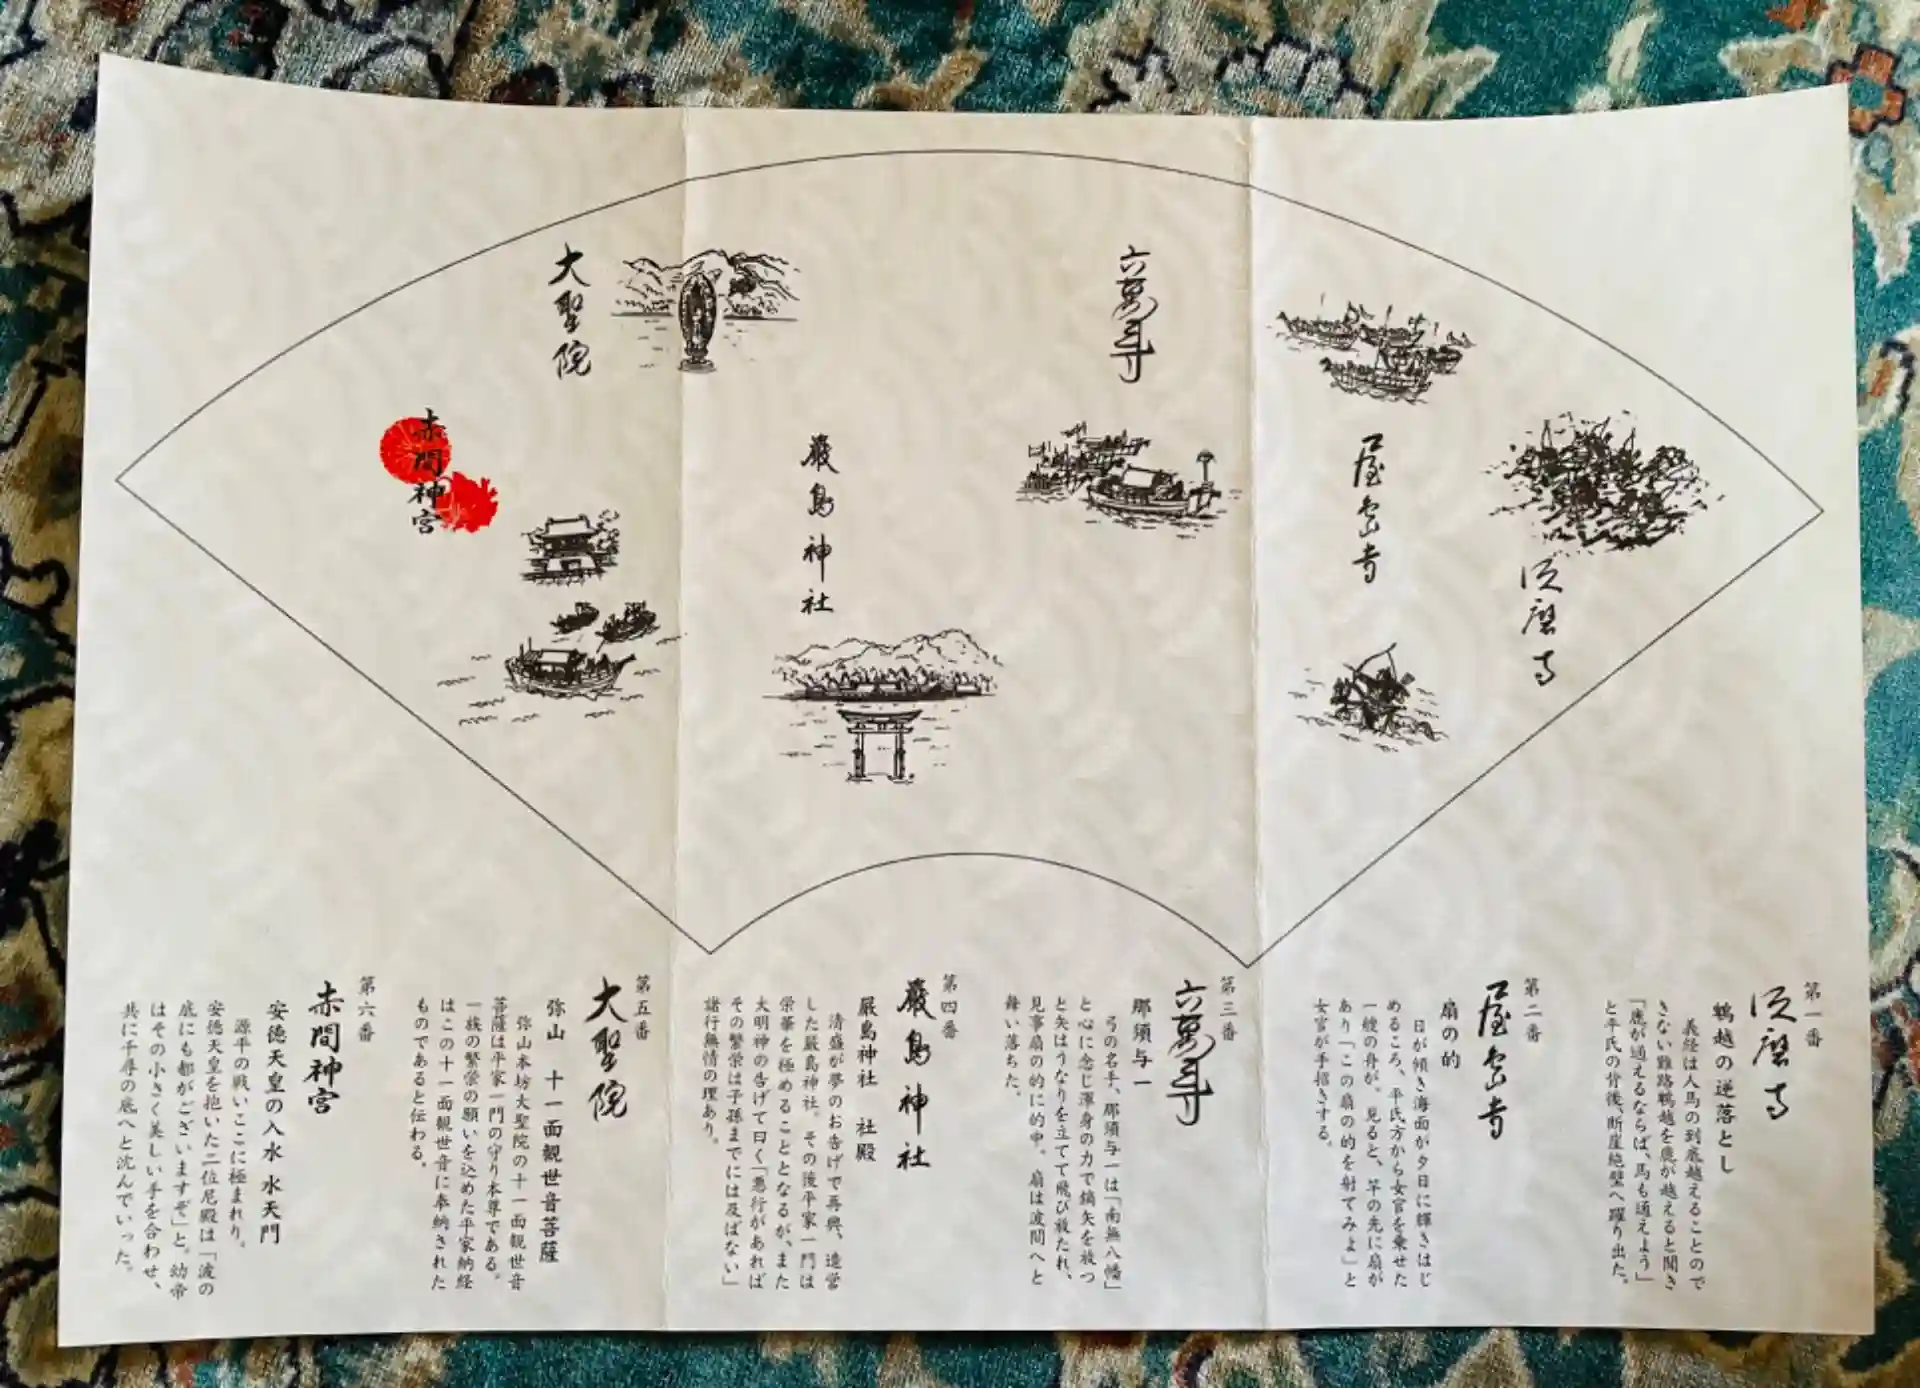 六萬寺
大聖院
須磨寺
屋島寺
嚴島神社
赤間神宮
第一番
須磨寺
鵯越の逆落とし
義経は人馬の到底越えることので
きない難路鵯越を鹿が越えると聞き
「鹿が通えるならば、馬も通えよう」
と平氏の背後、断崖絶壁へ躍り出た。
第二番
屋島寺
扇の的
日が傾き海面が夕日に輝きはじ
めるころ、平氏方から女官を乗せた
一艘の舟が。見ると、竿の先に扇が
あり「この扇の的を射てみよ」と
女官が手招きする。
第三番
六萬寺
那須与一
弓の名手、那須与一は「南無八幡」
と心に念じ渾身の力で鏑矢を放つ
と矢はうなりを立てて飛び放たれ、
見事扇の的に的中。扇は波間へと
舞い落ちた。
第四番
嚴島神社
厳島神社 社殿
清盛が夢のお告げで再興、造営
した厳島神社。その後平家一門は
栄華を極めることとなるが、また
大明神の告げて曰く「悪行があれば
その繁栄は子孫までには及ばない」
諸行無情の理あり。
第五番
大聖院
弥山 十一面観世音菩薩
弥山本坊大聖院の十一面観世音
菩薩は平家一門の守り本尊である。
一族の繁栄の願いを込めた平家納経
はこの十一面観世音に奉納された
ものであると伝わる。
第六番
赤間神宮
安徳天皇の入水 水天門
源平の戦いここに極まれり。
安徳天皇を抱いた二位尼殿は「波の
底にも都がございますぞ」と。幼帝
はその小さく美しい手を合わせ、
共に千尋の底へと沈んでいった。